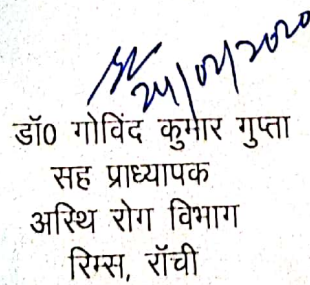 24/02/2020
डॉ0 गोविंद कुमार गुप्ता
सह प्राध्यापक
अस्थि रोग विभाग
रिम्स, रॉची